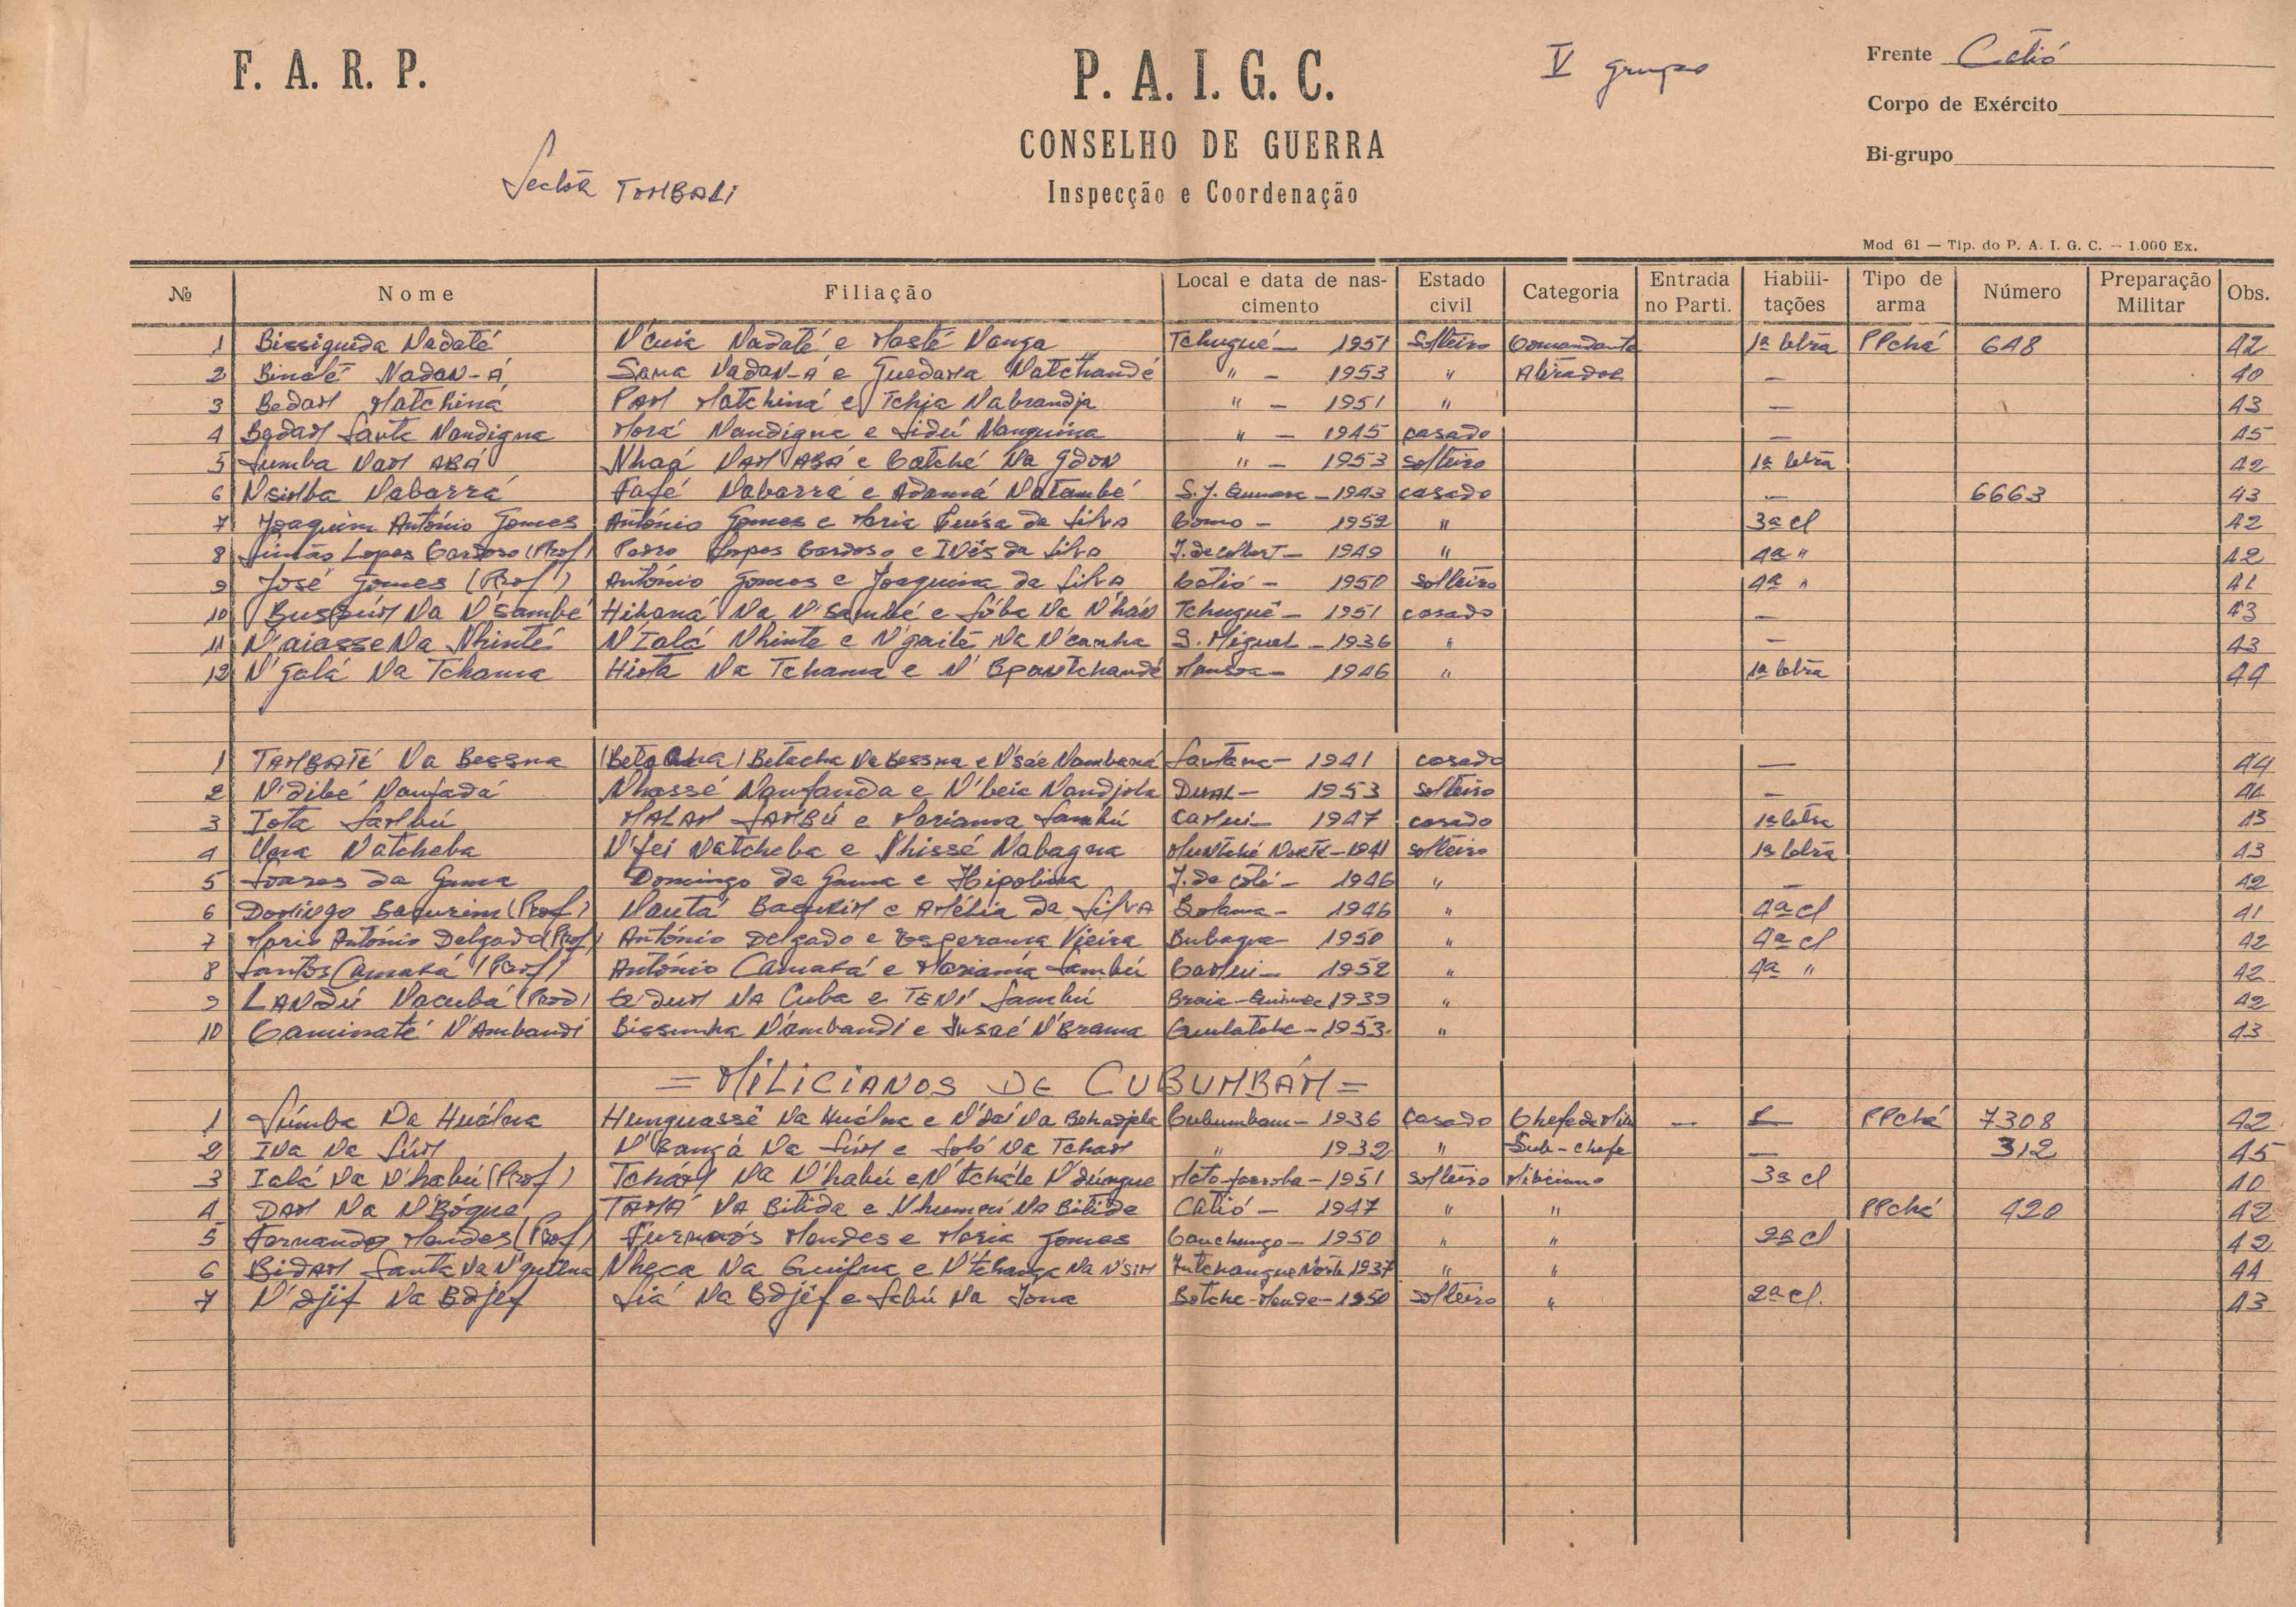 F. A. R. P.
P. A. I. G. C.
V grupo
Frente Catió
CONSELHO DE GUERRA
Corpo de Exército
Sectôr TOMBALI
Inspecção e Coordenação
Bi-grupo
Mod 61 — Tip. do P. A. I. G. C. — 1.000 Ex.
№ Nome Filiação Local e data de nascimento Estado civil Categoria Entrada no Parti. Habilitações Tipo de arma Número Preparação Militar Obs.
1 Bissiguida Nadaté N'cuia Nadaté e Masté Nanga Tchugué — 1951 Solteiro Comandante 1ª letra PPchá 648 42
2 Binalé NADAN-Á Sama NADAN-Á e Guedama Natchandé " — 1953 " Atirador — 40
3 Bedam Matchiná PAM Matchiná e Tchia Nabrandja " — 1951 " — 43
4 Bedam Santa Nandigna Morá Nandigna e Sideú Nanguina " — 1945 casado — 45
5 Sumba NAM ABÁ Nhagá NAM ABÁ e Catché Na gdon " — 1953 solteiro 1ª letra 42
6 Nsimba Nabarrá Fafé Nabarrá e Adamá Natambé S. J. — 1943 casado — 6663 43
7 Joaquim António Gomes António Gomes e Maria Luísa da Silva Como — 1952 " 3ª cl 42
8 Simão Lopes Cardoso (Prof) Pedro Lopes Cardoso e Inês da Silva J. de — 1949 " 4ª " 42
9 José Gomes (Prof) António Gomes e Joaquina da Silva Catió — 1950 solteiro 4ª " 41
10 BusNa N'sambé Hihaná Na N'sambé e Sóba Na N'hán Tchuguê — 1951 casado — 43
11 N'aiasse Na Nhinté N'Ialá Nhinte e N'gaité Na N'canha S. Miguel — 1936 " — 43
12 N'galá Na Tchama Hiota Na Tchama e N' Bpontchandé Mansoa — 1946 " 1ª letra 44
1 TAMBATÉ Na Bessna Betacha Na Bessna e N'sáe Nambaná Santana — 1941 casado — 44
2 N'dibé Nanfadá Nhassé Nanfanda e N'beia Nandjola DUAL — 1953 solteiro — 44
3 Iota Sambú MALAM SAMBÚ e Mariama Sambú Camui — 1947 casado 1ª letra 43
4 Natcheba N'fei Natcheba e Nhissé Nabagna NORTE — 1941 solteiro 1ª letra 43
5 Soares da Gama Domingo da Gama e Hipolina J. de — 1946 " — 42
6 Domingo Baqurim (Prof) Nautá Baqurim e Amélia da SilVA Bolama — 1946 " 4ª cl 41
7 Mario António Delgado (Prof) António Delgado e Esperança Vieira Bubaque — 1950 " 4ª cl 42
8 Santos Camará (Prof) António Camará e Mariama Sambú Camui — 1952 " 4ª " 42
9 LANDÚ Nacubá (Prod) NA Cuba e TENÍ Sambú 1939 " 42
10 Caminaté N'Ambandi Bissunha N'ambandi e Jusaé N'Brama — 1953. " 43
= MILICIANOS DE CUBUMBÁM =
1 Súmba Na Huálna Hunguassê Na Huálna e N'daí Na Bohadjela Cubumbam — 1936 casado Chefe de Mili — — PPchá 7308 42
2 INa Na Súm N'Bangá Na Súm e Soló Na Tcham " 1932 " Sub-chefe — 312 45
3 Ialá Na N'habú (Prof) Tchám Na N'habú e N'tchále N'dúngue Mato-farroba — 1951 solteiro Miliciano 3ª cl 40
4 DAM Na N'Bógue TAMÁ NA Bitide e Nhumpú NA Bitide Catió — 1947 " " PPchá 420 42
5 Fernando Mendes (Prof) Furnaós Mendes e Maria Gomes Canchungo — 1950 " " 2ª cl 42
6 BIDAM Santa Na N'guilna Nheca Na Guilna e N'tchanga Na N'SIM Norte 1937 " " 44
7 N'djif Na Bdjef Siá Na Bdjéf e Sabú Na Jona Botche-Mende — 1950 solteiro " 2ª cl. 43